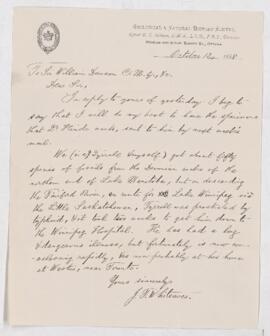 GEOLOGICAL & NATURAL HISTORY SURVEY,
October 12th, 1888.
To Sir William Dawson C.M.G., &c.
Dear Sir,
In reply to yours of yesterday I beg to
say that I will do my best to have the specimens
that Dr Hinde wants, sent to him by next week's
mail.
We (i.e. J. Tyrrell & myself) got about fifty
species of fossils from the Devonian rocks of the
northern end of Lake Manitoba, but in descending
the Fairford River, en route for Lake Winnipeg via
the Little Saskatchewan, Tyrrell was prostrated by
typhoid, & it took two weeks to get him down to
the Winnipeg Hospital. He has had a long
& dangerous illness, but fortunately is now con-
valescing rapidly, & is now probably at his home
at Weston, near Toronto.
Yours sincerely
J. F. Whiteaves.